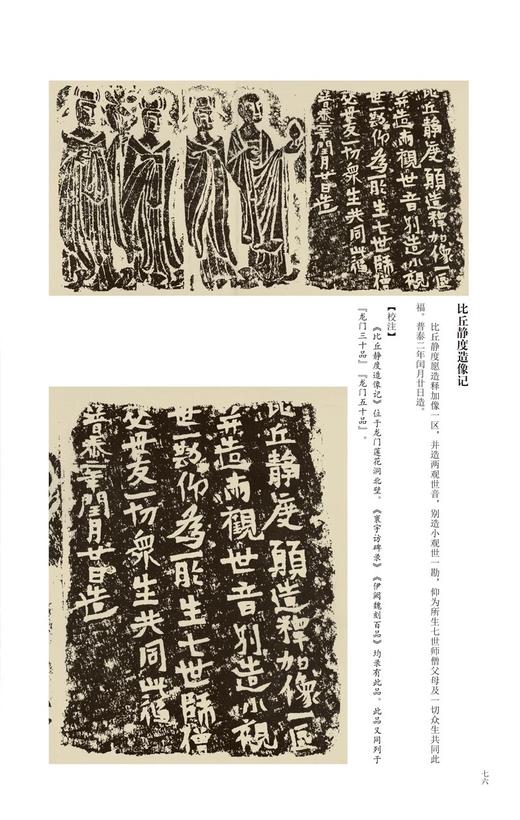 比丘静度願造釋加像一區
并造兩觀世音別造小觀
世一勘仰為所生七世師僧
父母及一切眾生共同此福
普泰二年閏月廿日造
比丘静度造像记
比丘静度愿造释加像一区，并造两观世音，别造小观世一勘，仰为所生七世师僧父母及一切众生共同此
福。普泰二年闰月廿日造。
【校注】
《比丘静度造像记》位于龙门莲花洞北壁。《寰宇访碑录》《伊阙魏刻百品》均录有此品。此品又同列于
『龙门三十品』『龙门五十品』。
比丘静度願造釋加像一區
并造兩觀世音別造小觀
世一勘仰為所生七世師僧
父母及一切眾生共同此福
普泰二年閏月廿日造
七六